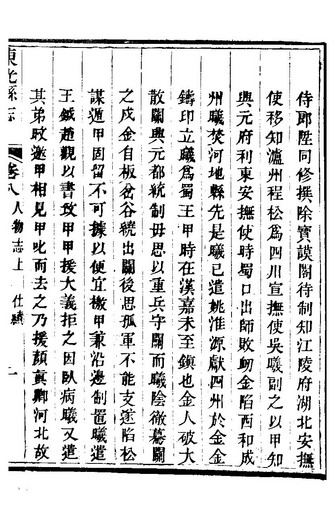 侍郎陞同修撰除寶謨閣待制知江陵府湖北安撫
使移知瀘州程松爲四川宣撫使吳曦副之以甲知
興元府利東安撫使時蜀口出師敗衂金陷西和成
州曦焚河池縣先是曦已遣姚淮源獻四州於金金
鑄印立曦爲蜀王甲時在漢嘉未至鎮也金人破大
散關興元都統制毋思以重兵守關而曦陰徹驀關
之戍金自板岔谷繞出關後思孤軍不能支遂陷松
謀遁甲固留不可據以便宜檄甲兼沿邊制置曦遣
王鉞趙觀以書攷甲甲援大義拒之因臥病曦又遣
其弟旼邀甲相見甲叱而去之乃援顏眞卿河北故
東光縣志
卷八
人物志上
仕蹟
一